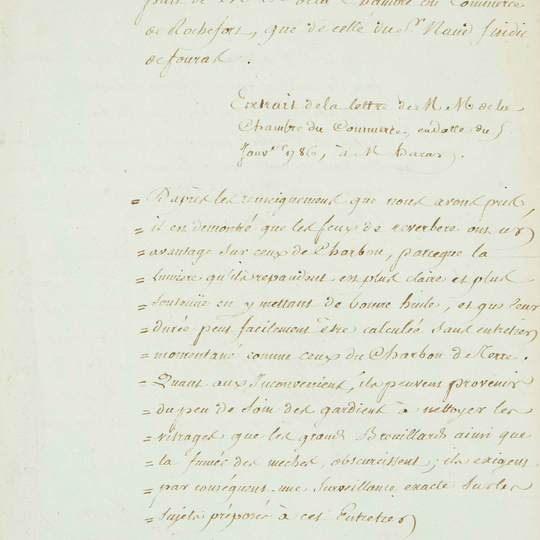 de la Chambre du Commerce
de Rochefort, que de celle du Sr. Naud Sindic
de fouras.
Extrait de la lettre de M M de la
Chambre du Commerce, en datte du 5
Janv.er 1786, à M
= D'après les renseignements que nous avons pris,
= il en démontré que les feux de reverbere ont un
= avantage sur ceux de Charbon, parceque la
= lumiere qu'ils repandent est plus claire et plus
= soutenüe en y mettant de bonne huile, et que leur
= durée peut facilement être calculée sans entretien
= momentané comme ceux du Charbon de Terre.
= Quant aux Inconvenients, ils peuvent provenir
= du peu de soin des gardiens à nettoyer les
= vitrages que les grands Brouillards ainsi que
= la fumée des meches, obscurcissent; ils exigent
= par conséquent une surveillance exacte sur les
= sujets préposés à cet Entretien